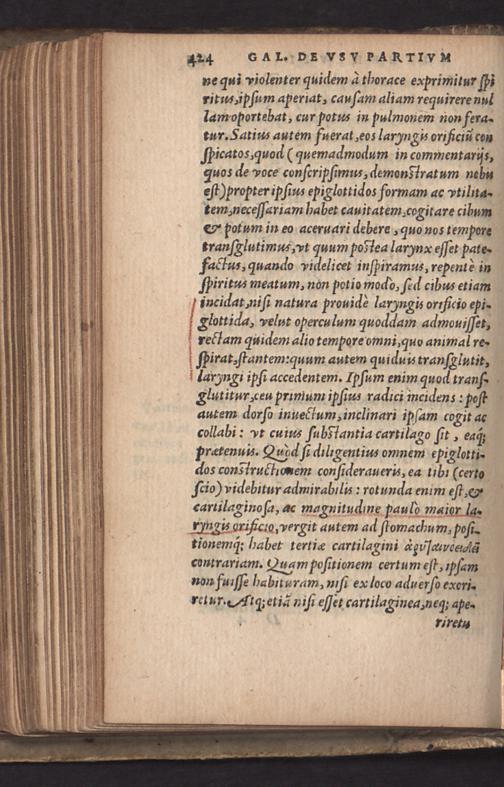 424 GAL. DE VSV PARTIVM
ne qui violenter quidem à thorace exprimitur ſpi
ritus, ipſum aperiat, cauſam aliam requirere nul
lam oportebat, cur potus in pulmonem non fera-
tur. Satius autem fuerat, eos laryngis orificiũ con
ſpicatos, quod (quemadmodum in commentarijs,
quos de voce conſcripſimus, demonſtratum nobis
eſt) propter ipſius epiglottidos formam ac vtilita-
tem, neceſſariam habet cauitatem, cogitare cibum
& potum in eo aceruari debere, quo nos tempore
tranſglutimus, vt quum poſtea larynx eſſet pate-
factus, quando videlicet inſpiramus, repentè in
ſpiritus meatum, non potio modò, ſed cibus etiam
incidat, niſi natura prouidè laryngis orificio epi-
glottida, velut operculum quoddam admouiſſet,
rectam quidem alio tempore omni, quo animal re-
ſpirat, ſtantem: quum autem quiduis tranſglutit,
laryngi ipſi accedentem. Ipſum enim quod tranſ-
glutitur, ceu primum ipſius radici incidens: poſt
autem dorſo inuectum, inclinari ipſam cogit ac
collabi: vt cuius ſubſtantia cartilago ſit, eaq;
prætenuis. Quòd ſi diligentius omnem epiglotti-
dos constructionem conſideraueris, ea tibi (certo
ſcio) videbitur admirabilis: rotunda enim eſt, &
cartilaginoſa, ac magnitudine paulò maior la-
ryngis orificio, vergit autem ad ſtomachum, poſi-
tionemq; habet tertiæ cartilagini
contrariam. Quam poſitionem certum eſt, ipſam
non fuiſſe habituram, niſi ex loco aduerſo exori-
retur. Atq; etiã niſi eſſet cartilaginea, neq; ape-
riretu